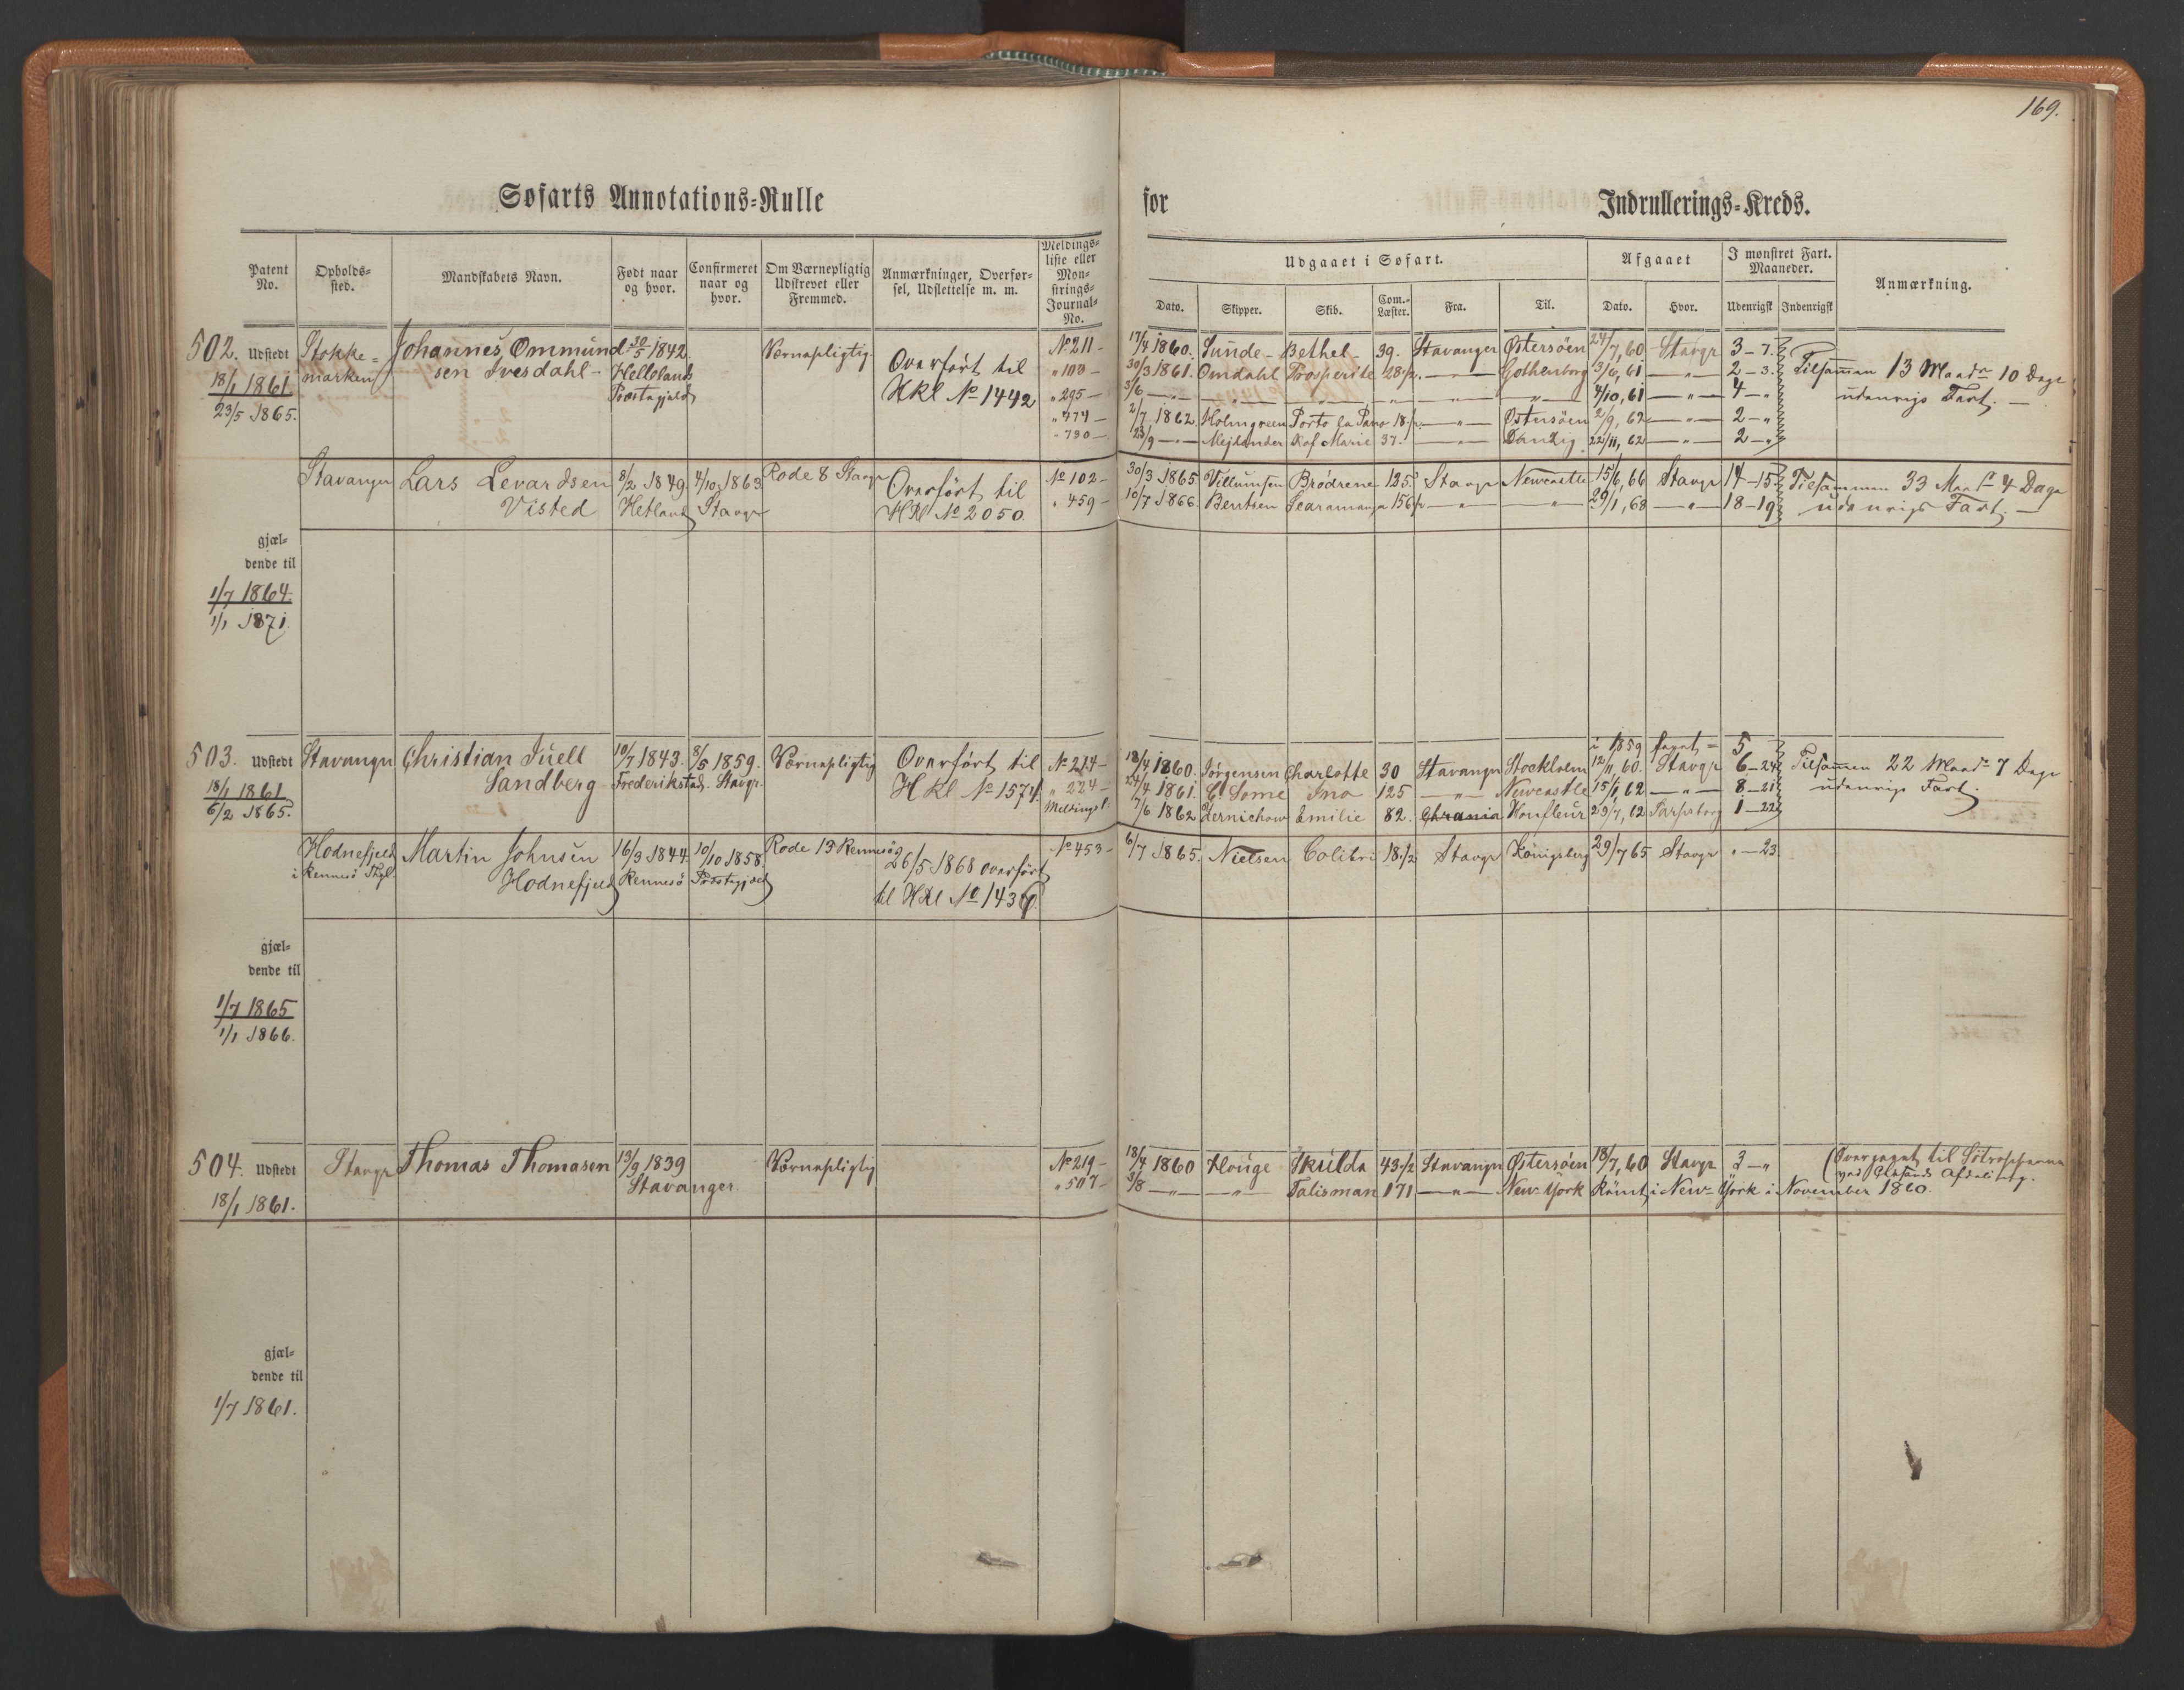 169.
Søfarts Annotations=Rulle for Indrullerings=Kreds.
Patent No.
Opholds=sted.
Mandskabets Navn.
Født naar og hvor.
Confirmeret naar og hvor.
Om Værnepligtig Udskrevet eller Fremmed.
Anmærkninger, Overfør=sel, Udslettelse m. m.
Meldings=liste eller Møn=strings=Journal=No.
Udgaaet i Søfart.
Dato. Skipper. Skib. Com.=Læster. Fra. Til.
Afgaaet
Dato. Hvor.
I mønstret Fart. Maaneder.
Udenrigsk Indenrigsk
Anmærkning.
502. Udstedt
18/1 1861
23/5 1865.
Stokke=
marken
Johannes Ommund=
sen Ivesdahl
/5 1842
Hellelands
Præstegjeld
Værnepligtig
Overført til
HKl No 1442
No 211
" 103
" 295
" 774
" 730
17/4 1860. Sunde Bethel 39. Stavanger Østersøen 24/7, 60 Stavgr 3-7.
30/3 1861. Omdahl Prosperite 28 1/2 — " — Gothenborg 3/6, 61 — " — 2-3.
3/6 — " — " — " — " — " — " 4/10, 61 — " — 4-"
2/7 1862 Holmgreen Porto la Pano 18 1/2 — " — Østersøen 2/9, 62 — " — 2-"
23/9 — " — Mejdander Hof Marie 37. — " — Danzig 22/11, 62 — " — 2-"
Tilsammen 13 Maadr 10 Dage
udenrigs Fart.
Stavanger
Lars Levardsen
Visted
8/2 1849
Hetland
4/10 1863
Stavgr
Rode 8 Stavgr
Overført til
HKl No 2050
No 102
" 459
30/3 1865 Villumsen Brødrene 125. Stavgr Newcastle 15/6, 66 Stavgr 14-15.
10/7 1866. Bentsen Scaramanga 156 1/2 — " — " 29/1, 68 — " — 18-19
Tilsammen 33 Maadr 4 Dage
udenrigs Fart.
gjæl=
dende til
1/7 1864.
1/1 1871.
503. Udstedt
18/1 1861
6/2 1865.
Stavanger
Christian Juell
Sandberg
10/7 1843.
Frederikstad.
8/5 1859.
Stavgr.
Værnepligtig
Overført til
HKl No 1574.
No 214
" 224
Meldingsl.
i 1859 faret = 5
18/4 1860. Jørgensen Charlotte 30 Stavanger Stockholm 12/11 60. Stavgr 6-24
24/4 1861. C. Some Ino 125 — " — Newcastle 15/1, 62 — " — 8-21
7/6 1862 Emilie 82. Chrania Honfleur 29/7, 62 Sarpsborg 1-22
Tilsammen 22 Maadr 7 Dage
udenrigs Fart.
Hodnefjeld
i Rennesø Thgl.
Martin Johnsen
Hodnefjeld
16/3 1844.
Rennesø
10/10 1858.
Præstegjæld
Rode 13 Rennesø
26/5 1868 overført
til HKl No 1436.
No 453
6/7 1865. Nielsen Colibri 18 1/2 Stavgr Kønigsberg 29/7 65 Stavgr "-23.
gjæl=
dende til
1/7 1865
1/1 1866.
504. Udstedt
18/1 1861.
Stavgr
Thomas Thomasen
13/9 1839
Stavanger
Værnepligtig
No 219
" 507
18/4 1860 Houge Skulda 43 1/2 Stavanger Østersøen 18/7, 60 Stavgr 3-"
3/8 — " — " — Talisman 171 — " — New-York Rømt i New-York i November 1860.
(Overgaaet til Søtropperne
ved Afdeling.
gjæl=
dende til
1/7 1861.